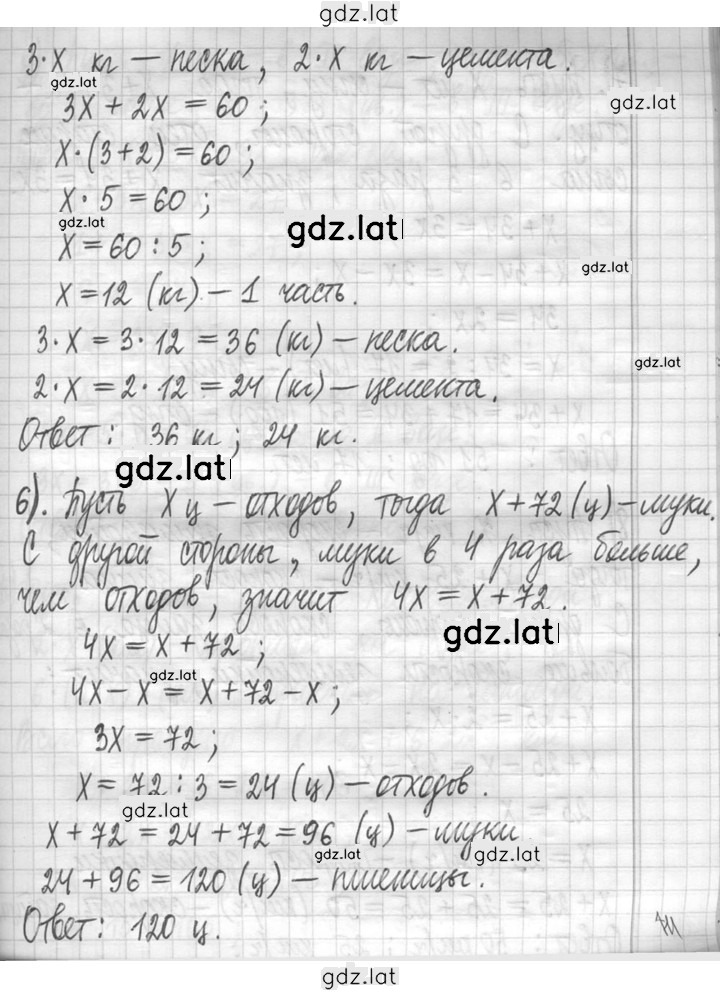 gdz.lat
3·x кг — песка, 2·x кг — цемента.
gdz.lat
3x + 2x = 60;
gdz.lat
x·(3+2) = 60;
x·5 = 60;
gdz.lat
gdz.lat
x = 60 : 5;
gdz.lat
x = 12 (кг) – 1 часть.
3·x = 3·12 = 36 (кг) – песка.
gdz.lat
2·x = 2·12 = 24 (кг) – цемента.
Ответ: 36 кг; 24 кг.
gdz.lat
б). Пусть x ц – отходов, тогда x+72 (ц) – муки.
С другой стороны, муки в 4 раза больше,
чем отходов, значит 4x = x + 72.
gdz.lat
4x = x + 72;
gdz.lat
4x – x = x + 72 – x;
3x = 72;
x = 72 : 3 = 24 (ц) – отходов.
gdz.lat
x + 72 = 24 + 72 = 96 (ц) – муки
gdz.lat
gdz.lat
24 + 96 = 120 (ц) – пшеницы.
Ответ: 120 ц.
gdz.lat